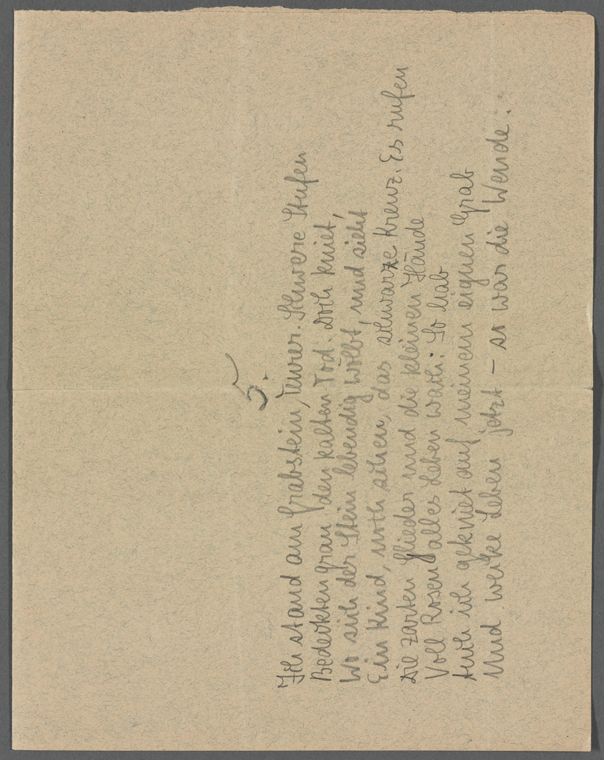 5.
Ich stand am Grabstein, Teurer. Schwere Stufen
Bedeckten grau den kalten Tod. Doch kniet,
Wo sich der Stein lebendig wölbt, und sieht
Ein Kind, noch schon, das schwarze Kreuz. Es rufen
Die zarten Glieder und die kleinen Hände
Voll Rosen alles Leben wach: So hab
Auch ich gekniet auf meinem eignen Grab
Und weiße Leben jetzt – so war die Wende.